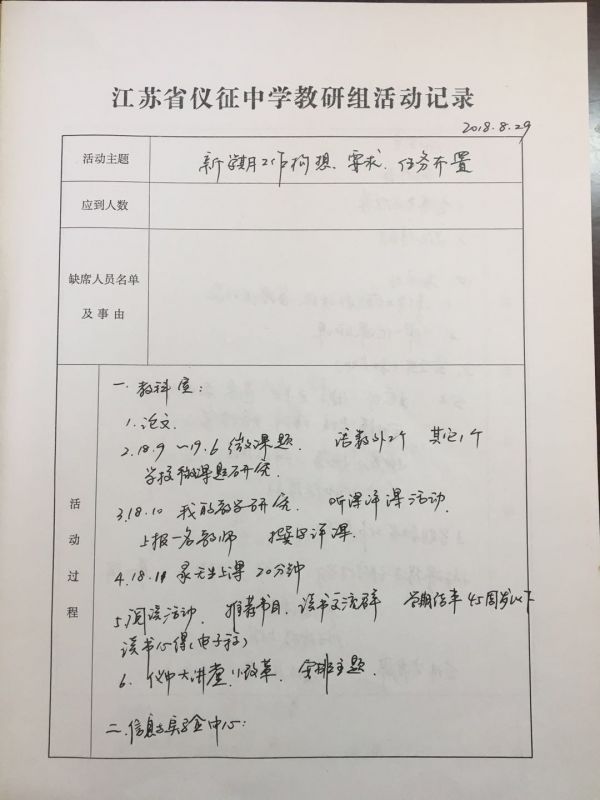 江苏省仪征中学教研组活动记录
2018.8.29
活动主题
新学期工作构想、要求、任务布置
应到人数
缺席人员名单
及事由
活动过程
一、教科室：
1.论文.
2.18.9～19.6 微课题. 语数外2个 其它1个
学校微课题研究
3.18.10 我的教学研究. 听课评课活动.
上报一名教师 撰写评课.
4.18.11 上课 20分钟
5.阅读活动. 推荐书目、读书交流群 学期结束45周岁以下
读书心得(电子稿)
6. 仪中大讲堂, 改革. 安排主题.
二.信息与实验中心: